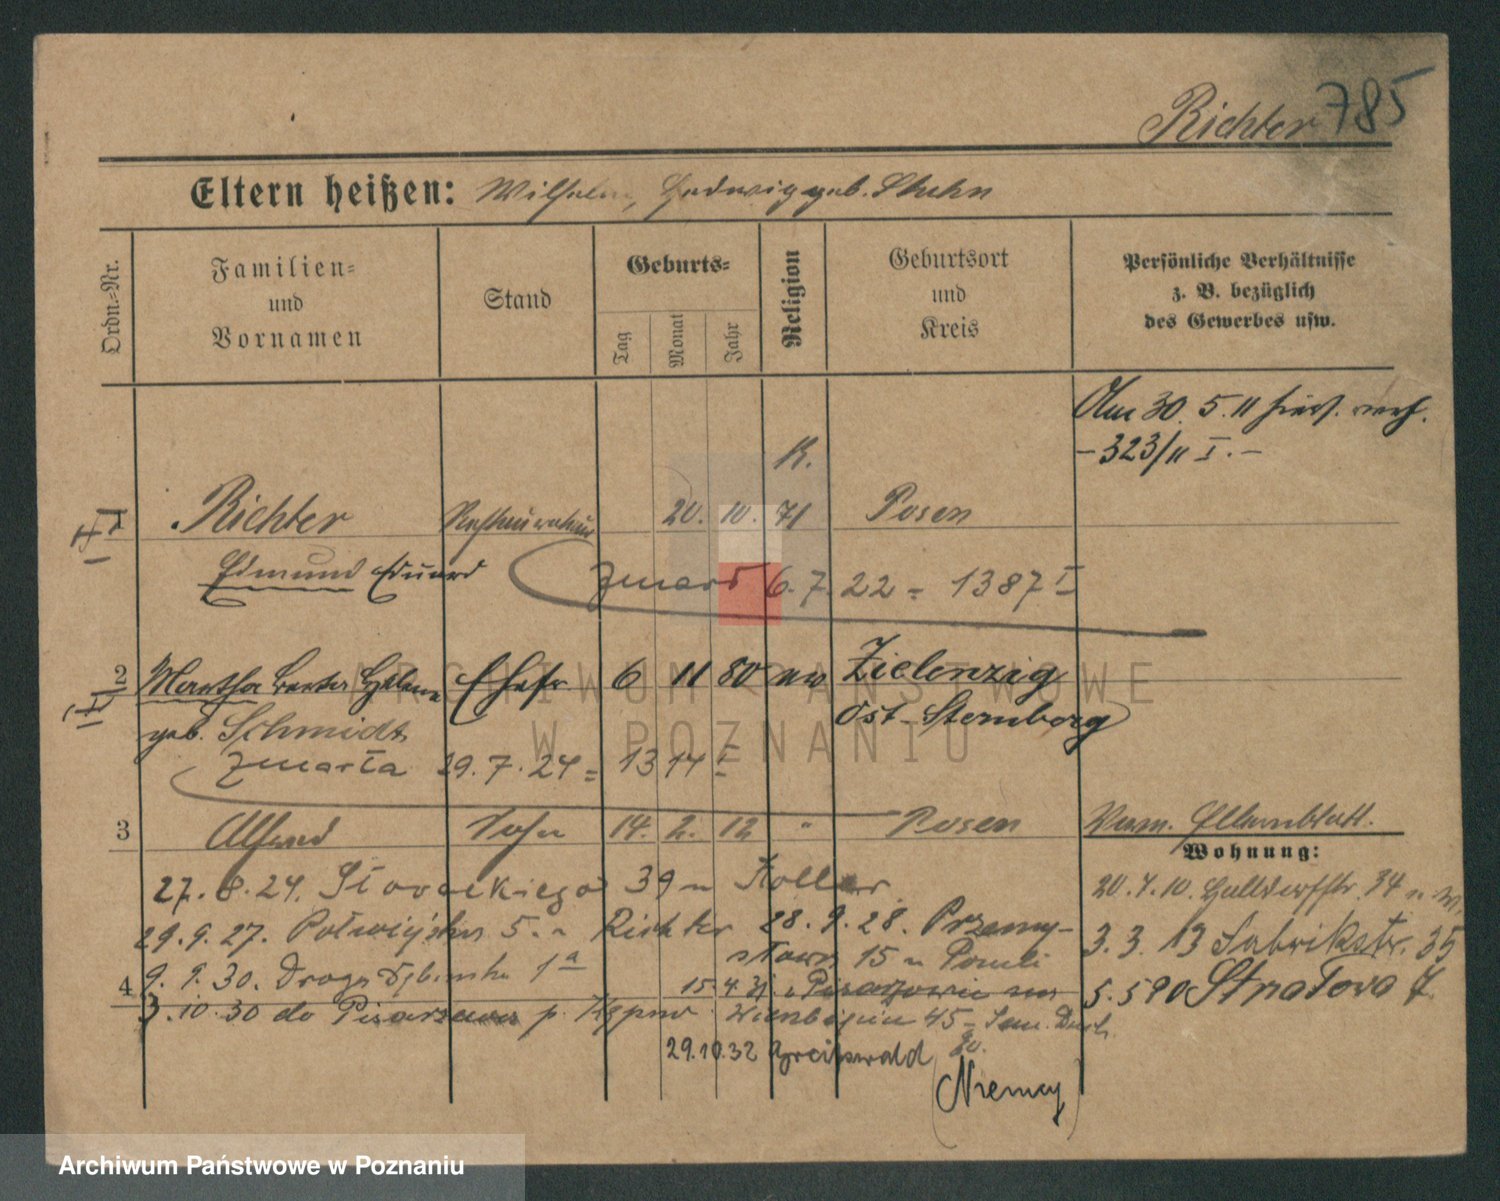 Richter 785
Eltern heißen: Wilhelm, Hedwig geb. Stuhn
Ordn.-Nr.
Familien-
und
Vornamen
Stand
Geburts-
Tag
Monat
Jahr
Religion
Geburtsort
und
Kreis
Persönliche Verhältnisse
z. B. bezüglich
des Gewerbes usw.
Am 30. 5. 11
K.
- 323/11 I. -
Richter 20. 10. 71 Posen
Edmund Eduard
Zmarł 6. 7. 22 = 1387 I
2 Martha Helene Ehefr. 6 11 80 ev Zielenzig
geb. Schmidt Ost-Sternberg
Zmarła 29. 7. 24 = 1314 I
3 Alfred Sohn 14. 2. 12 " Posen
Wohnung:
27. 8. 24. Słowackiego 39 u Koller
20. 4. 10. 34
29. 9. 27. 5. u Richter 28. 9. 28. Przemy-
sława 15 u
3. 3. 13 Fabrikstr. 35
9. 9. 30. Droga Dębińska 1a
4
15. 4. 31
5. 5 90 Strałowa 7
3. 10. 30 do p. 45
29.10.32 Greifswald
(Niemcy)
ARCHIWUM PAŃSTWOWE
W POZNANIU
Archiwum Państwowe w Poznaniu